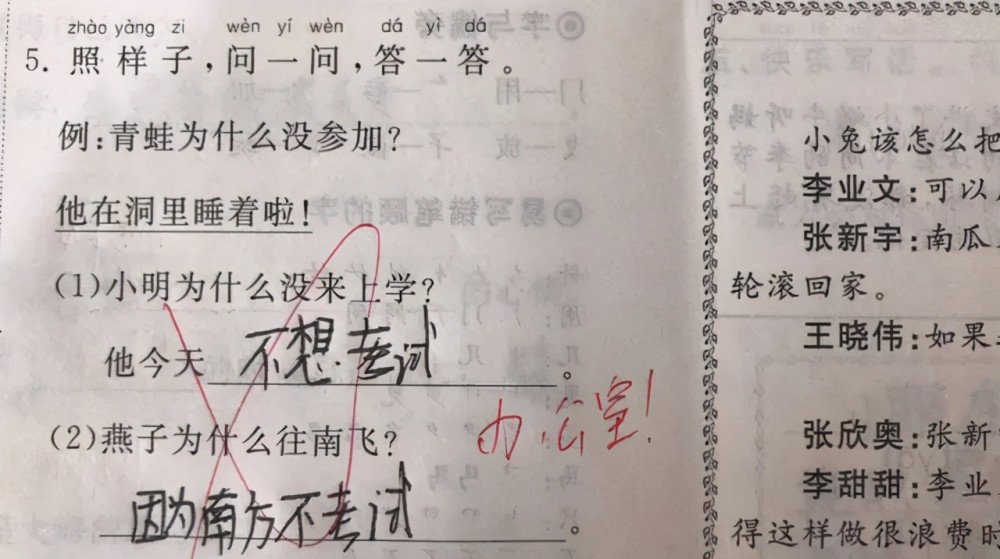 zhào yàng zi wèn yí wèn dá yì dá
5. 照样子，问一问，答一答。
例：青蛙为什么没参加？
他在洞里睡着啦！
(1)小明为什么没来上学？
他今天不想考试。
(2)燕子为什么往南飞？
因为南方不考试。
办公室！
小兔该怎么把
李业文：可以
张新宇：南瓜
轮滚回家。
王晓伟：如果
张欣奥：张新
李甜甜：李业
得这样做很浪费时